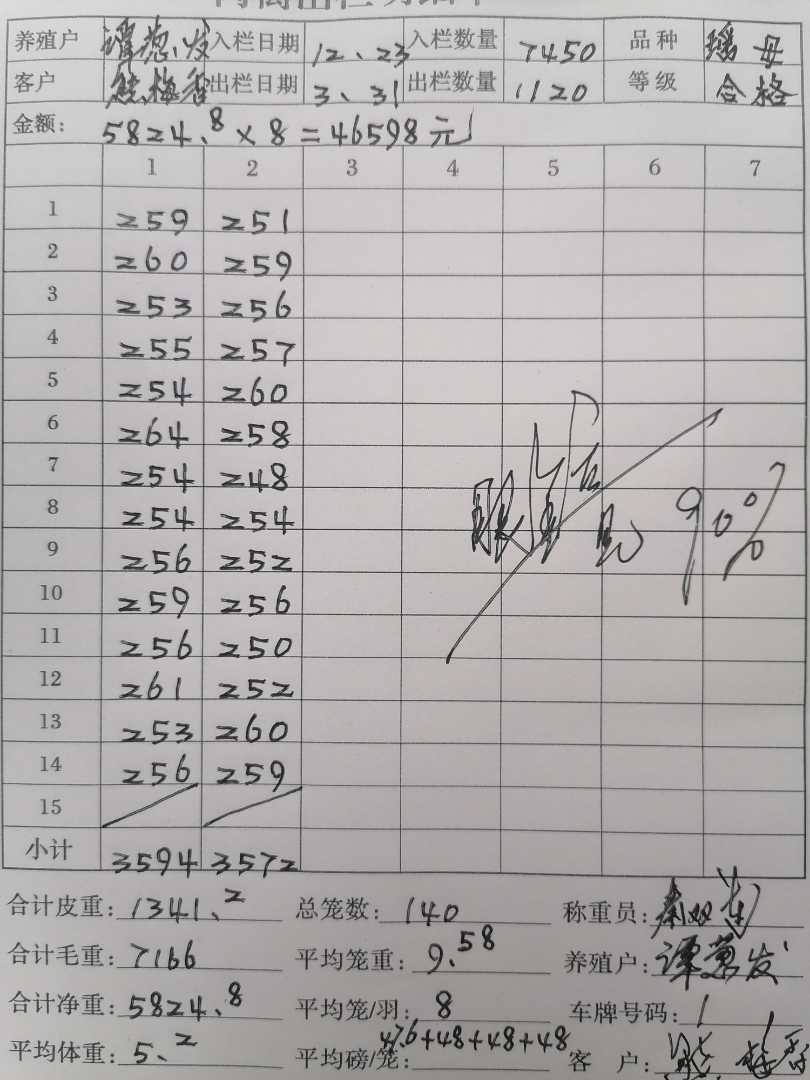 养殖户 谭葱发 入栏日期 12、23 入栏数量 7450 品种 瑶母
客户 熊梅香 出栏日期 3、31 出栏数量 1120 等级 合格
金额: 5824.8 × 8 = 46598元
1 2 3 4 5 6 7
1 259 251
2 260 259
3 253 256
4 255 257
5 254 260
6 264 258
7 254 248
8 254 254
9 256 252
10 259 256
11 256 250
12 261 252
13 253 260
14 256 259
15
小计 3594 3572
90%
合计皮重: 1341.2 总笼数: 140 称重员:
合计毛重: 7166 平均笼重: 9.58 养殖户: 谭葱发
合计净重: 5824.8 平均笼/羽: 8 车牌号码:
平均体重: 5.2 平均磅/笼: 47.6+48+48+48 客户: